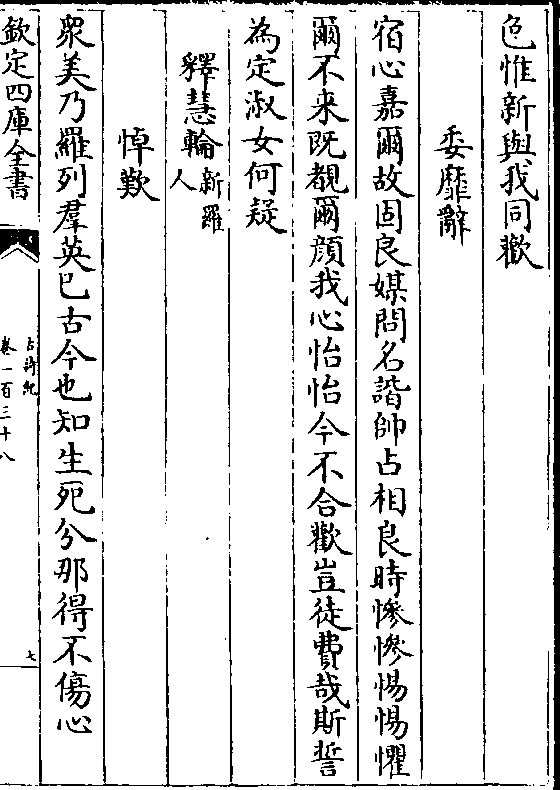 色惟新與我同歡
委靡辭
宿心嘉爾故固良媒問名諧帥占相良時慘慘惕惕懼
爾不来既覩爾顔我心怡怡今不合歡豈徒費哉斯誓
為定淑女何疑
釋慧輪新羅人
悼歎
衆美乃羅列羣英已古今也知生死分那得不傷心
欽定四庫全書
古詩紀
卷一百三十八
七